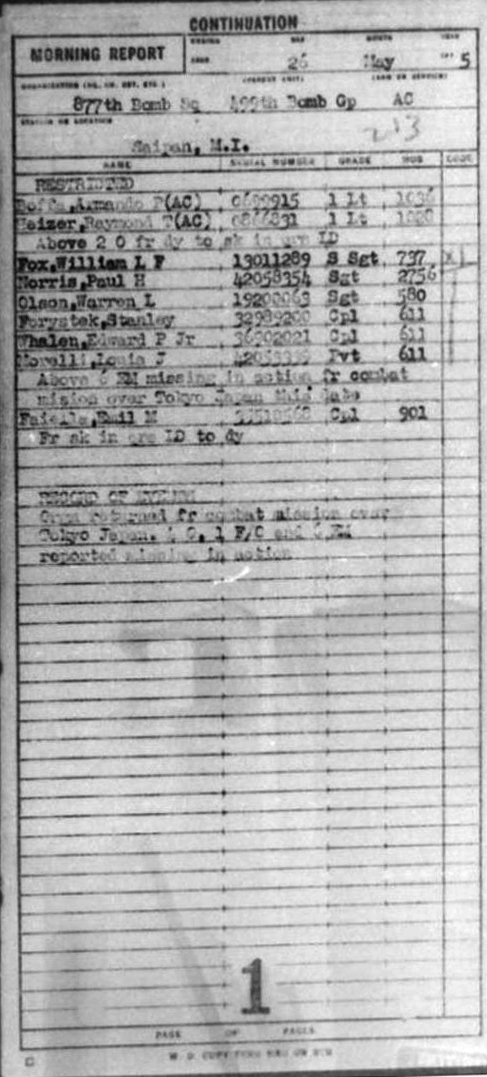 CONTINUATION
MORNING REPORT
ENDING DAY MONTH YEAR
26 May 5
877th Bomb Sq 499th Bomb Gp AC
STATION OR LOCATION
213
Saipan, M.I.
NAME SERIAL NUMBER GRADE MOS CODE
RESTRICTED
Armando P(AC) 1 Lt
Raymond T(AC) 1 Lt
Above 2 O fr dy to sk in qrs LD
Fox,William L F 13011289 S Sgt 737
Norris,Paul H 42058354 Sgt 2756
Olson,Warren L 19200063 Sgt 580
Stanley 32989200 Cpl 611
Whalen,Edward P Jr 36902021 Cpl 611
Morelli,Louis J Pvt 611
Above 6 EM missing in action fr combat
mision over Tokyo Japan this date
Emil M Cpl 901
Fr sk in qrs LD to dy
RECORD OF EVENTS
Orgn returned fr combat mission over
Tokyo Japan. 4 O, 1 F/O and 6 EM
reported missing in action
1
PAGE OF PAGES